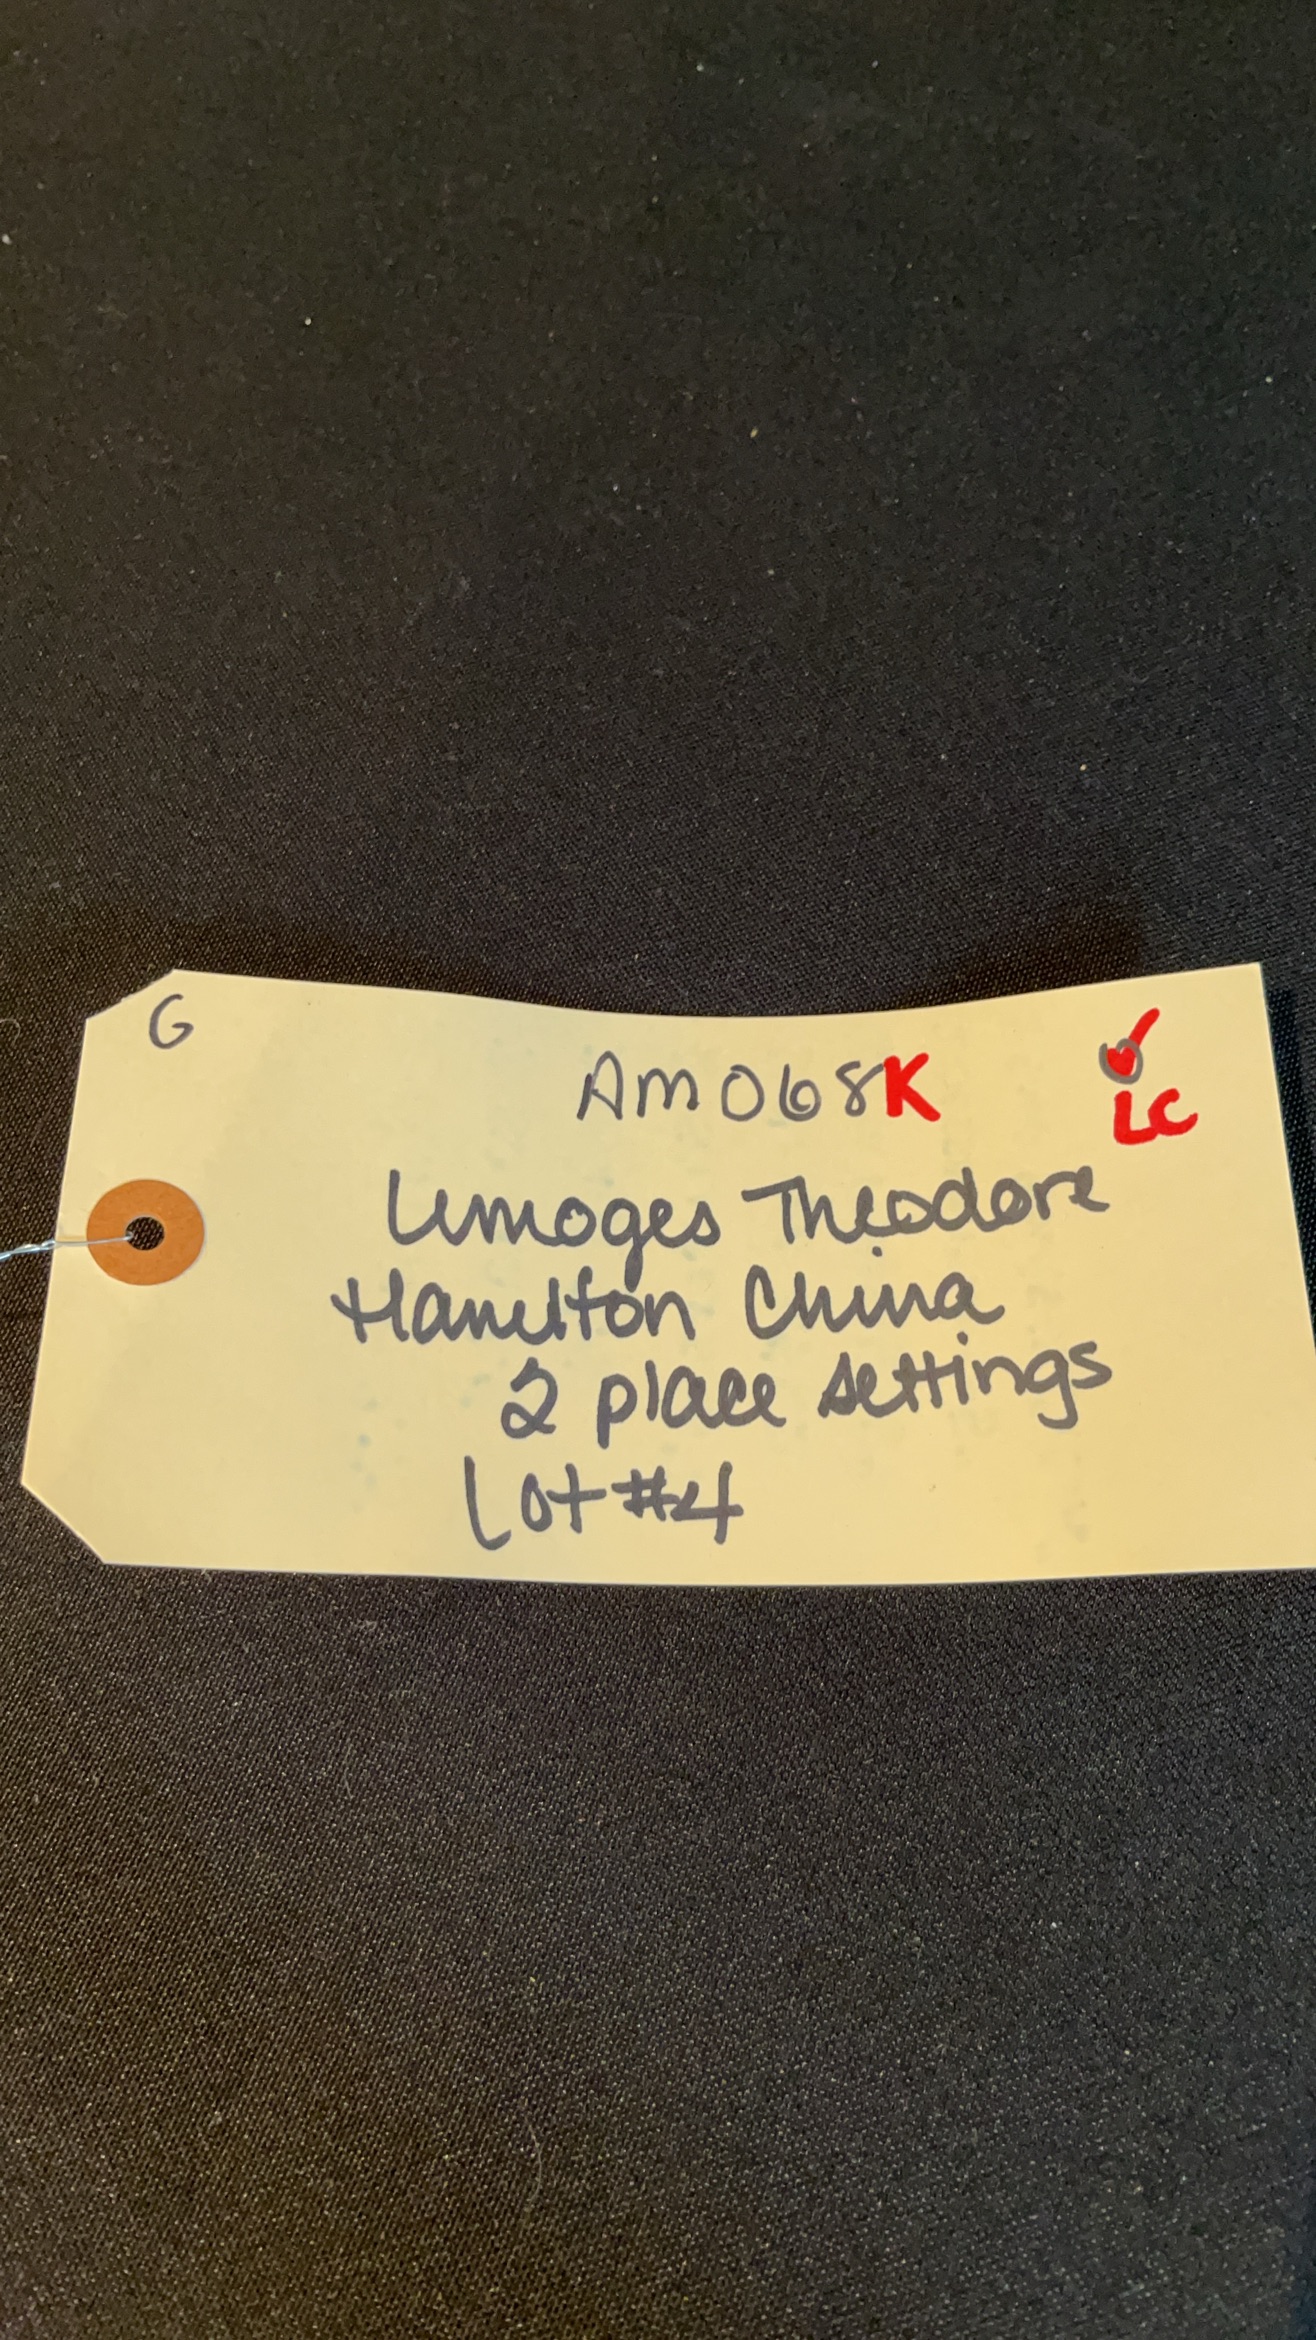 G
AM068K
LC
Limoges Theodore
Hamilton China
2 place settings
Lot #4